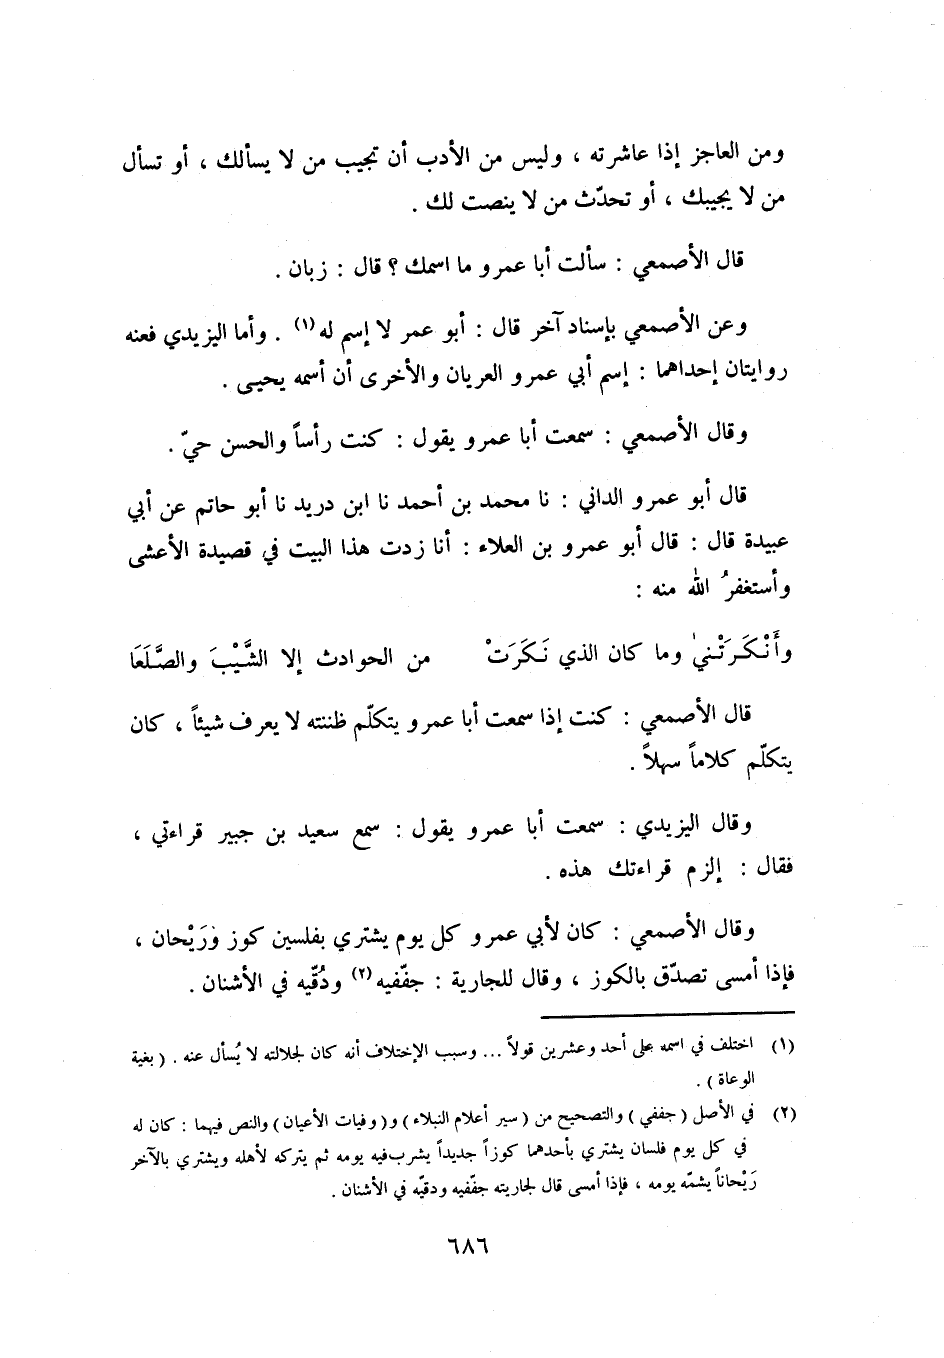 ومن العاجز إذا عاشرته ، وليس من الأدب أن تجيب من لا يسألك ، أو تسأل
من لا يجيبك ، أو تحدّث من لا ينصت لك .
قال الأصمعي : سألت أبا عمرو ما اسمك ؟ قال : زبان .
وعن الأصمعي بإسناد آخر قال : أبو عمر لا إسم له(١) . وأما اليزيدي فعنه
روايتان إحداهما : إسم أبي عمرو العريان والأخرى أن أسمه يحيى .
وقال الأصمعي : سمعت أبا عمرو يقول : كنت رأساً والحسن حيّ .
قال أبو عمرو الداني : نا محمد بن أحمد نا ابن دريد نا أبو حاتم عن أبي
عبيدة قال : قال أبو عمرو بن العلاء : أنا زدت هذا البيت في قصيدة الأعشى
وأستغفرُ الله منه :
وأَنْكَرَتْني وما كان الذي نَكَرَتْ من الحوادث إلا الشَّيْبَ والصَّلَعَا
قال الأصمعي : كنت إذا سمعت أبا عمرو يتكلّم ظننته لا يعرف شيئاً ، كان
يتكلّم كلاماً سهلاً .
وقال اليزيدي : سمعت أبا عمرو يقول : سمع سعيد بن جبير قراءتي ،
فقال : إلزم قراءتك هذه .
وقال الأصمعي : كان لأبي عمرو كل يوم يشتري بفلسين كوز ورَيْحان ،
فإذا أمسى تصدّق بالكوز ، وقال للجارية : جفّفيه(٢) ودُقّيه في الأشنان .
(١) اختلف في اسمه على أحد وعشرين قولاً ... وسبب الإختلاف أنه كان لجلالته لا يُسأل عنه . ( بغية
الوعاة ) .
(٢) في الأصل ( جففي ) والتصحيح من ( سير أعلام النبلاء ) و( وفيات الأعيان ) والنص فيهما : كان له
في كل يوم فلسان يشتري بأحدهما كوزاً جديداً يشرب فيه يومه ثم يتركه لأهله ويشتري بالآخر
رَيْحاناً يشمّه يومه ، فإذا أمسى قال لجاريته جفّفيه ودقيّه في الأشنان .
٦٨٦